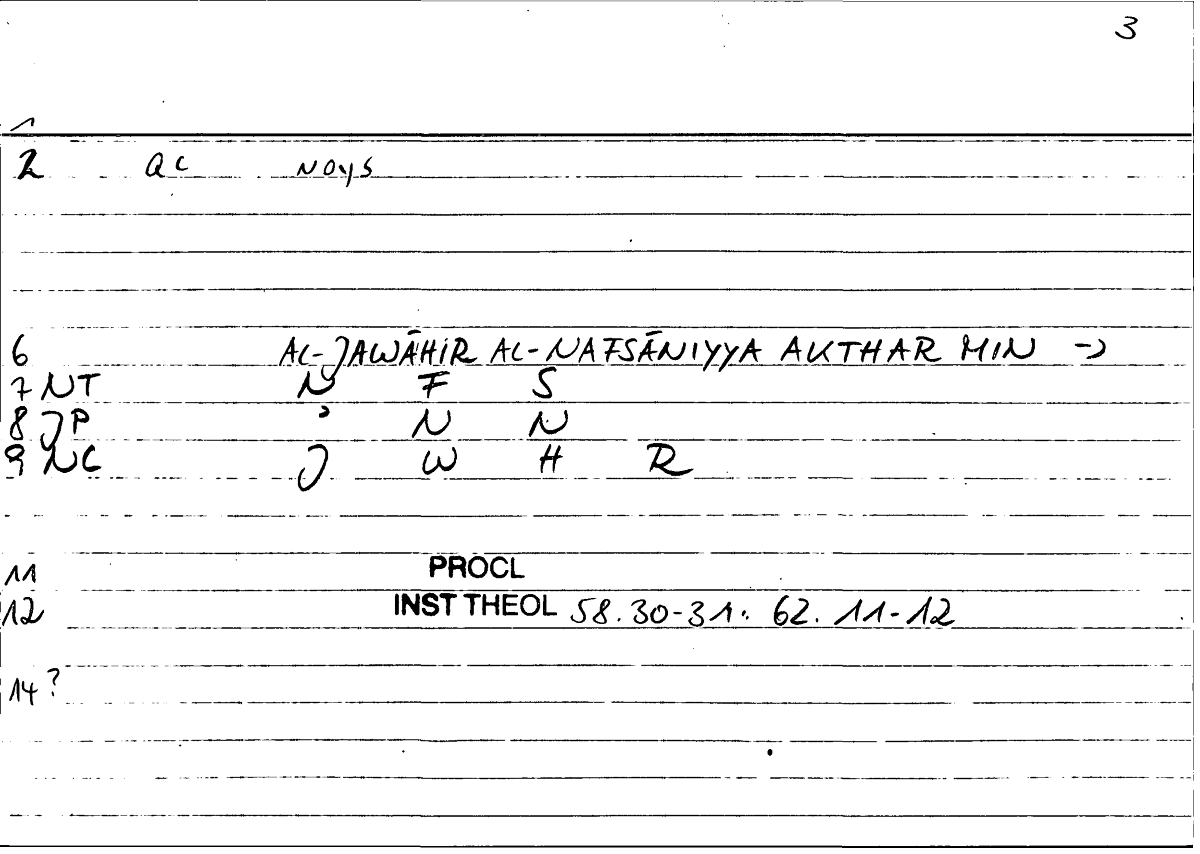 3
1
2 QC NOYS
6 AL-JAWĀHIR AL-NAFSĀNIYYA AKTHAR MIN →
7 NT N F S
8 JP ' N N
9 NC J W H R
11 PROCL
12 INST THEOL 58.30-31. 62.11-12
14?